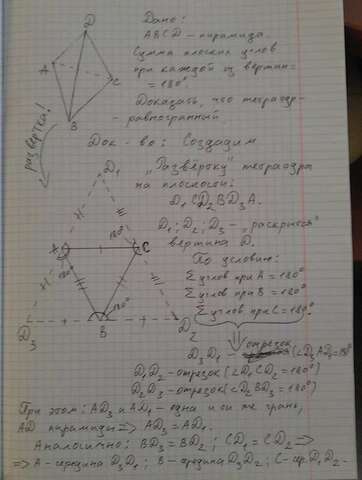 Дано:
ABCD - пирамида.
Сумма плоских углов
при каждой из вершин =
= 180°.
Доказать, что тетраэдр -
- равногранный.
D
A
C
B
развертка!
Док-во: Создадим
„Развёртку" тетраэдра
на плоскости:
D₁CD₂BD₃A.
D₁; D₂; D₃ - „раскрылся"
вершина D.
По условию:
Σ углов при A = 180°
Σ углов при B = 180°
Σ углов при C = 180°.
D₁
A
C
180°
180°
180°
D₃
B
D₂
D₃D₁ - отрезок (∠D₃AD₁=180°)
D₁D₂ - отрезок (∠D₁CD₂ = 180°)
D₂D₃ - отрезок (∠D₂BD₃ = 180°)
При этом: AD₃ и AD₁ - одна и та же грань,
AD пирамиды ⇒ AD₃ = AD₁.
Аналогично: BD₃ = BD₂; CD₁ = CD₂ ⇒
⇒ A - середина D₃D₁; B - середина D₃D₂; C - сер. D₁D₂ -